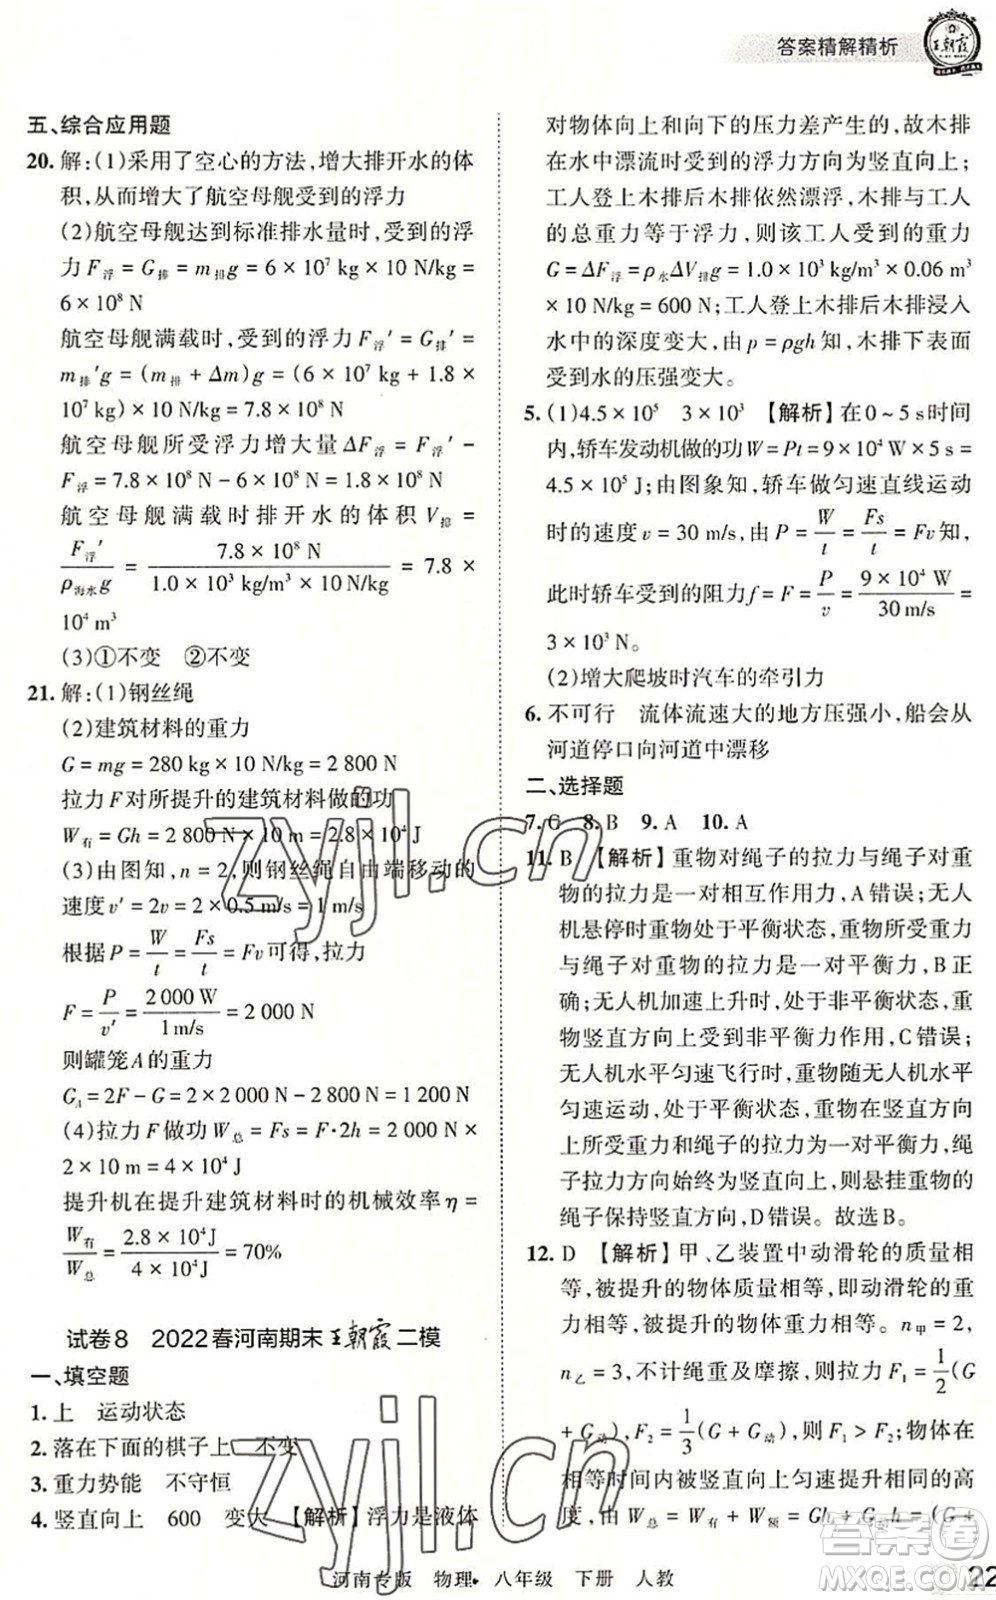 答案精解精析
王朝霞
五、综合应用题
20. 解:(1)采用了空心的方法,增大排开水的体
积,从而增大了航空母舰受到的浮力
(2)航空母舰达到标准排水量时,受到的浮
力F浮 = G排 = m排g = 6 × 10⁷ kg × 10 N/kg =
6 × 10⁸ N
航空母舰满载时,受到的浮力 F浮′ = G排′ =
m排′g = (m排 + Δm)g = (6 × 10⁷ kg + 1.8 ×
10⁷ kg) × 10 N/kg = 7.8 × 10⁸ N
航空母舰所受浮力增大量 ΔF浮 = F浮′ −
F浮 = 7.8 × 10⁸ N − 6 × 10⁸ N = 1.8 × 10⁸ N
航空母舰满载时排开水的体积 V排 =
F浮′/(ρ海水g) = 7.8 × 10⁸ N/(1.0 × 10³ kg/m³ × 10 N/kg) = 7.8 ×
10⁴ m³
(3)①不变 ②不变
21. 解:(1)钢丝绳
(2)建筑材料的重力
G = mg = 280 kg × 10 N/kg = 2 800 N
拉力 F 对所提升的建筑材料做的功
W有 = Gh = 2 800 N × 10 m = 2.8 × 10⁴ J
(3)由图知,n = 2,则钢丝绳自由端移动的
速度 v′ = 2v = 2 × 0.5 m/s = 1 m/s
根据 P = W/t = Fs/t = Fv 可得,拉力
F = P/v′ = 2 000 W/1 m/s = 2 000 N
则罐笼 A 的重力
GA = 2F − G = 2 × 2 000 N − 2 800 N = 1 200 N
(4)拉力 F 做功 W总 = Fs = F·2h = 2 000 N ×
2 × 10 m = 4 × 10⁴ J
提升机在提升建筑材料时的机械效率 η =
W有/W总 = 2.8 × 10⁴ J/4 × 10⁴ J = 70%
试卷8 2022春河南期末王朝霞二模
一、填空题
1. 上 运动状态
2. 落在下面的棋子上 不变
3. 重力势能 不守恒
4. 竖直向上 600 变大 【解析】浮力是液体
对物体向上和向下的压力差产生的,故木排
在水中漂流时受到的浮力方向为竖直向上;
工人登上木排后木排依然漂浮,木排与工人
的总重力等于浮力,则该工人受到的重力
G = ΔF浮 = ρ水ΔV排g = 1.0 × 10³ kg/m³ × 0.06 m³
× 10 N/kg = 600 N;工人登上木排后木排浸入
水中的深度变大,由 p = ρgh 知,木排下表面
受到水的压强变大。
5. (1)4.5 × 10⁵ 3 × 10³ 【解析】在0 ~ 5 s时间
内,轿车发动机做的功 W = Pt = 9 × 10⁴ W × 5 s =
4.5 × 10⁵ J;由图象知,轿车做匀速直线运动
时的速度 v = 30 m/s,由 P = W/t = Fs/t = Fv 知,
此时轿车受到的阻力 f = F = P/v = 9 × 10⁴ W/30 m/s =
3 × 10³ N。
(2)增大爬坡时汽车的牵引力
6. 不可行 流体流速大的地方压强小,船会从
河道停口向河道中漂移
二、选择题
7. C 8. B 9. A 10. A
11. B 【解析】重物对绳子的拉力与绳子对重
物的拉力是一对相互作用力,A错误;无人
机悬停时重物处于平衡状态,重物所受重力
与绳子对重物的拉力是一对平衡力,B正
确;无人机加速上升时,处于非平衡状态,重
物竖直方向上受到非平衡力作用,C错误;
无人机水平匀速飞行时,重物随无人机水平
匀速运动,处于平衡状态,重物在竖直方向
上所受重力和绳子的拉力是一对平衡力,绳
子拉力方向始终为竖直向上,则悬挂重物的
绳子保持竖直方向,D错误。故选B。
12. D 【解析】甲、乙装置中动滑轮的质量相
等,被提升的物体质量相等,即动滑轮的重
力相等,被提升的物体重力相等。n甲 = 2,
n乙 = 3,不计绳重及摩擦,则拉力 F₁ = 1/2(G
+ G动),F₂ = 1/3(G + G动),则 F₁ > F₂;物体在
相等时间内被竖直向上提升相等的高
度,由 W总 = W有 + W额 = Gh + G动h = (G +
河南专版 物理 八年级 下册 人教
22
zyjl.cn
zyjl.cn
答案圈